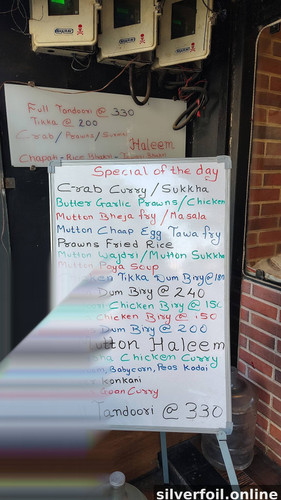 Full Tandoori @ 330
Tikka @ 200
Crab/Prawns/Sukkha
Haleem
Chapati - Rice
Special of the day
Crab Curry/Sukkha
Butter Garlic Prawns/Chicken
Mutton Bheja fry/Masala
Mutton Chaap Egg Tawa fry
Prawns Fried Rice
Mutton Wajdri/Mutton Sukkha
Mutton Paya Soup
Tikka Dum Biry@180
Dum Biry @ 240
Chicken Biry @ 150
Chicken Biry @ 150
Dum Biry @ 200
Mutton Haleem
Chicken Curry
Babycorn, Peas Kadai
Konkani
Curry
Tandoori @ 330
silverfoil.online